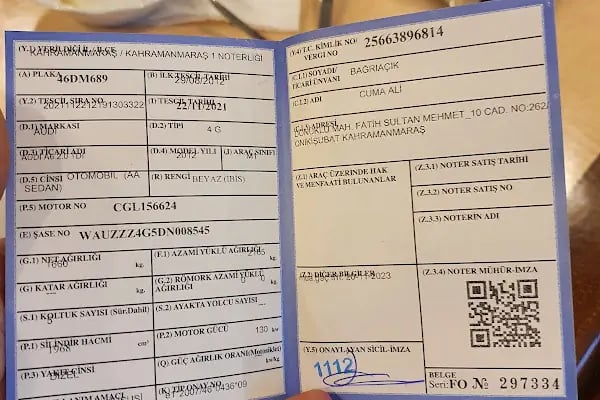 (Y.1) VERİLDİĞİ İL / İLÇE
KAHRAMANMARAŞ / KAHRAMANMARAŞ 1 NOTERLİĞİ
(A) PLAKA 46DM689
(B) İLK TESCİL TARİHİ
29/08/2012
(Y.2) TESCİL SIRA NO
20211122121919303322
(I) TESCİL TARİHİ
22/11/2021
(D.1) MARKASI
AUDI
(D.2) TİPİ
4 G
(D.3) TİCARİ ADI
AUDI A6 2.0 TDI
(D.4) MODEL YILI
2012
(J) ARAÇ SINIFI
M1
(D.5) CİNSİ OTOMOBİL (AA
SEDAN)
(R) RENGİ BEYAZ (İBİS)
(P.5) MOTOR NO CGL156624
(E) ŞASE NO WAUZZZ4G5DN008545
(G.1) NET AĞIRLIĞI
1660 kg.
(F.1) AZAMİ YÜKLÜ AĞIRLIĞI
kg.
(G) KATAR AĞIRLIĞI
kg.
(G.2) RÖMORK AZAMİ YÜKLÜ
AĞIRLIĞI
kg.
(S.1) KOLTUK SAYISI (Sür.Dahil)
5
(S.2) AYAKTA YOLCU SAYISI
(P.1) SİLİNDİR HACMİ
1968 cm³
(P.2) MOTOR GÜCÜ 130 kw
(P.3) YAKIT CİNSİ
DİZEL
(Q) GÜÇ AĞIRLIK ORANI(Motosiklet)
kw/kg.
KULLANIM AMACI
(K) TİP ONAY NO
(Y.4) T.C. KİMLİK NO/
VERGİ NO
25663896814
(C.1.1) SOYADI/
TİCARİ ÜNVANI
BAĞRIAÇIK
(C.1.2) ADI
CUMA ALİ
(C.1.3) ADRESİ
MAH. FATİH SULTAN MEHMET_10 CAD. NO:262/
ONİKİŞUBAT KAHRAMANMARAŞ
(Z.1) ARAÇ ÜZERİNDE HAK
VE MENFAATİ BULUNANLAR
(Z.3.1) NOTER SATIŞ TARİHİ
(Z.3.2) NOTER SATIŞ NO
(Z.3.3) NOTERİN ADI
(Z.2) DİĞER BİLGİLER
(Z.3.4) NOTER MÜHÜR-İMZA
(Y.5) ONAYLAYAN SİCİL-İMZA
1112
BELGE
Seri:FO № 297334